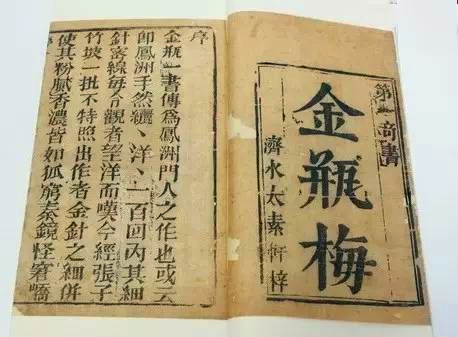 第一奇書
金瓶梅
濟水太素軒梓
序
金瓶一書傳爲鳳洲門人之作也或云
卽鳳洲手然纚丶洋丶一百回內其細
針密線每令觀者望洋而嘆今經張子
竹坡一批不特照出作者金針之細併
使其粉膩香濃皆如狐窮秦鏡怪窘嶠
序